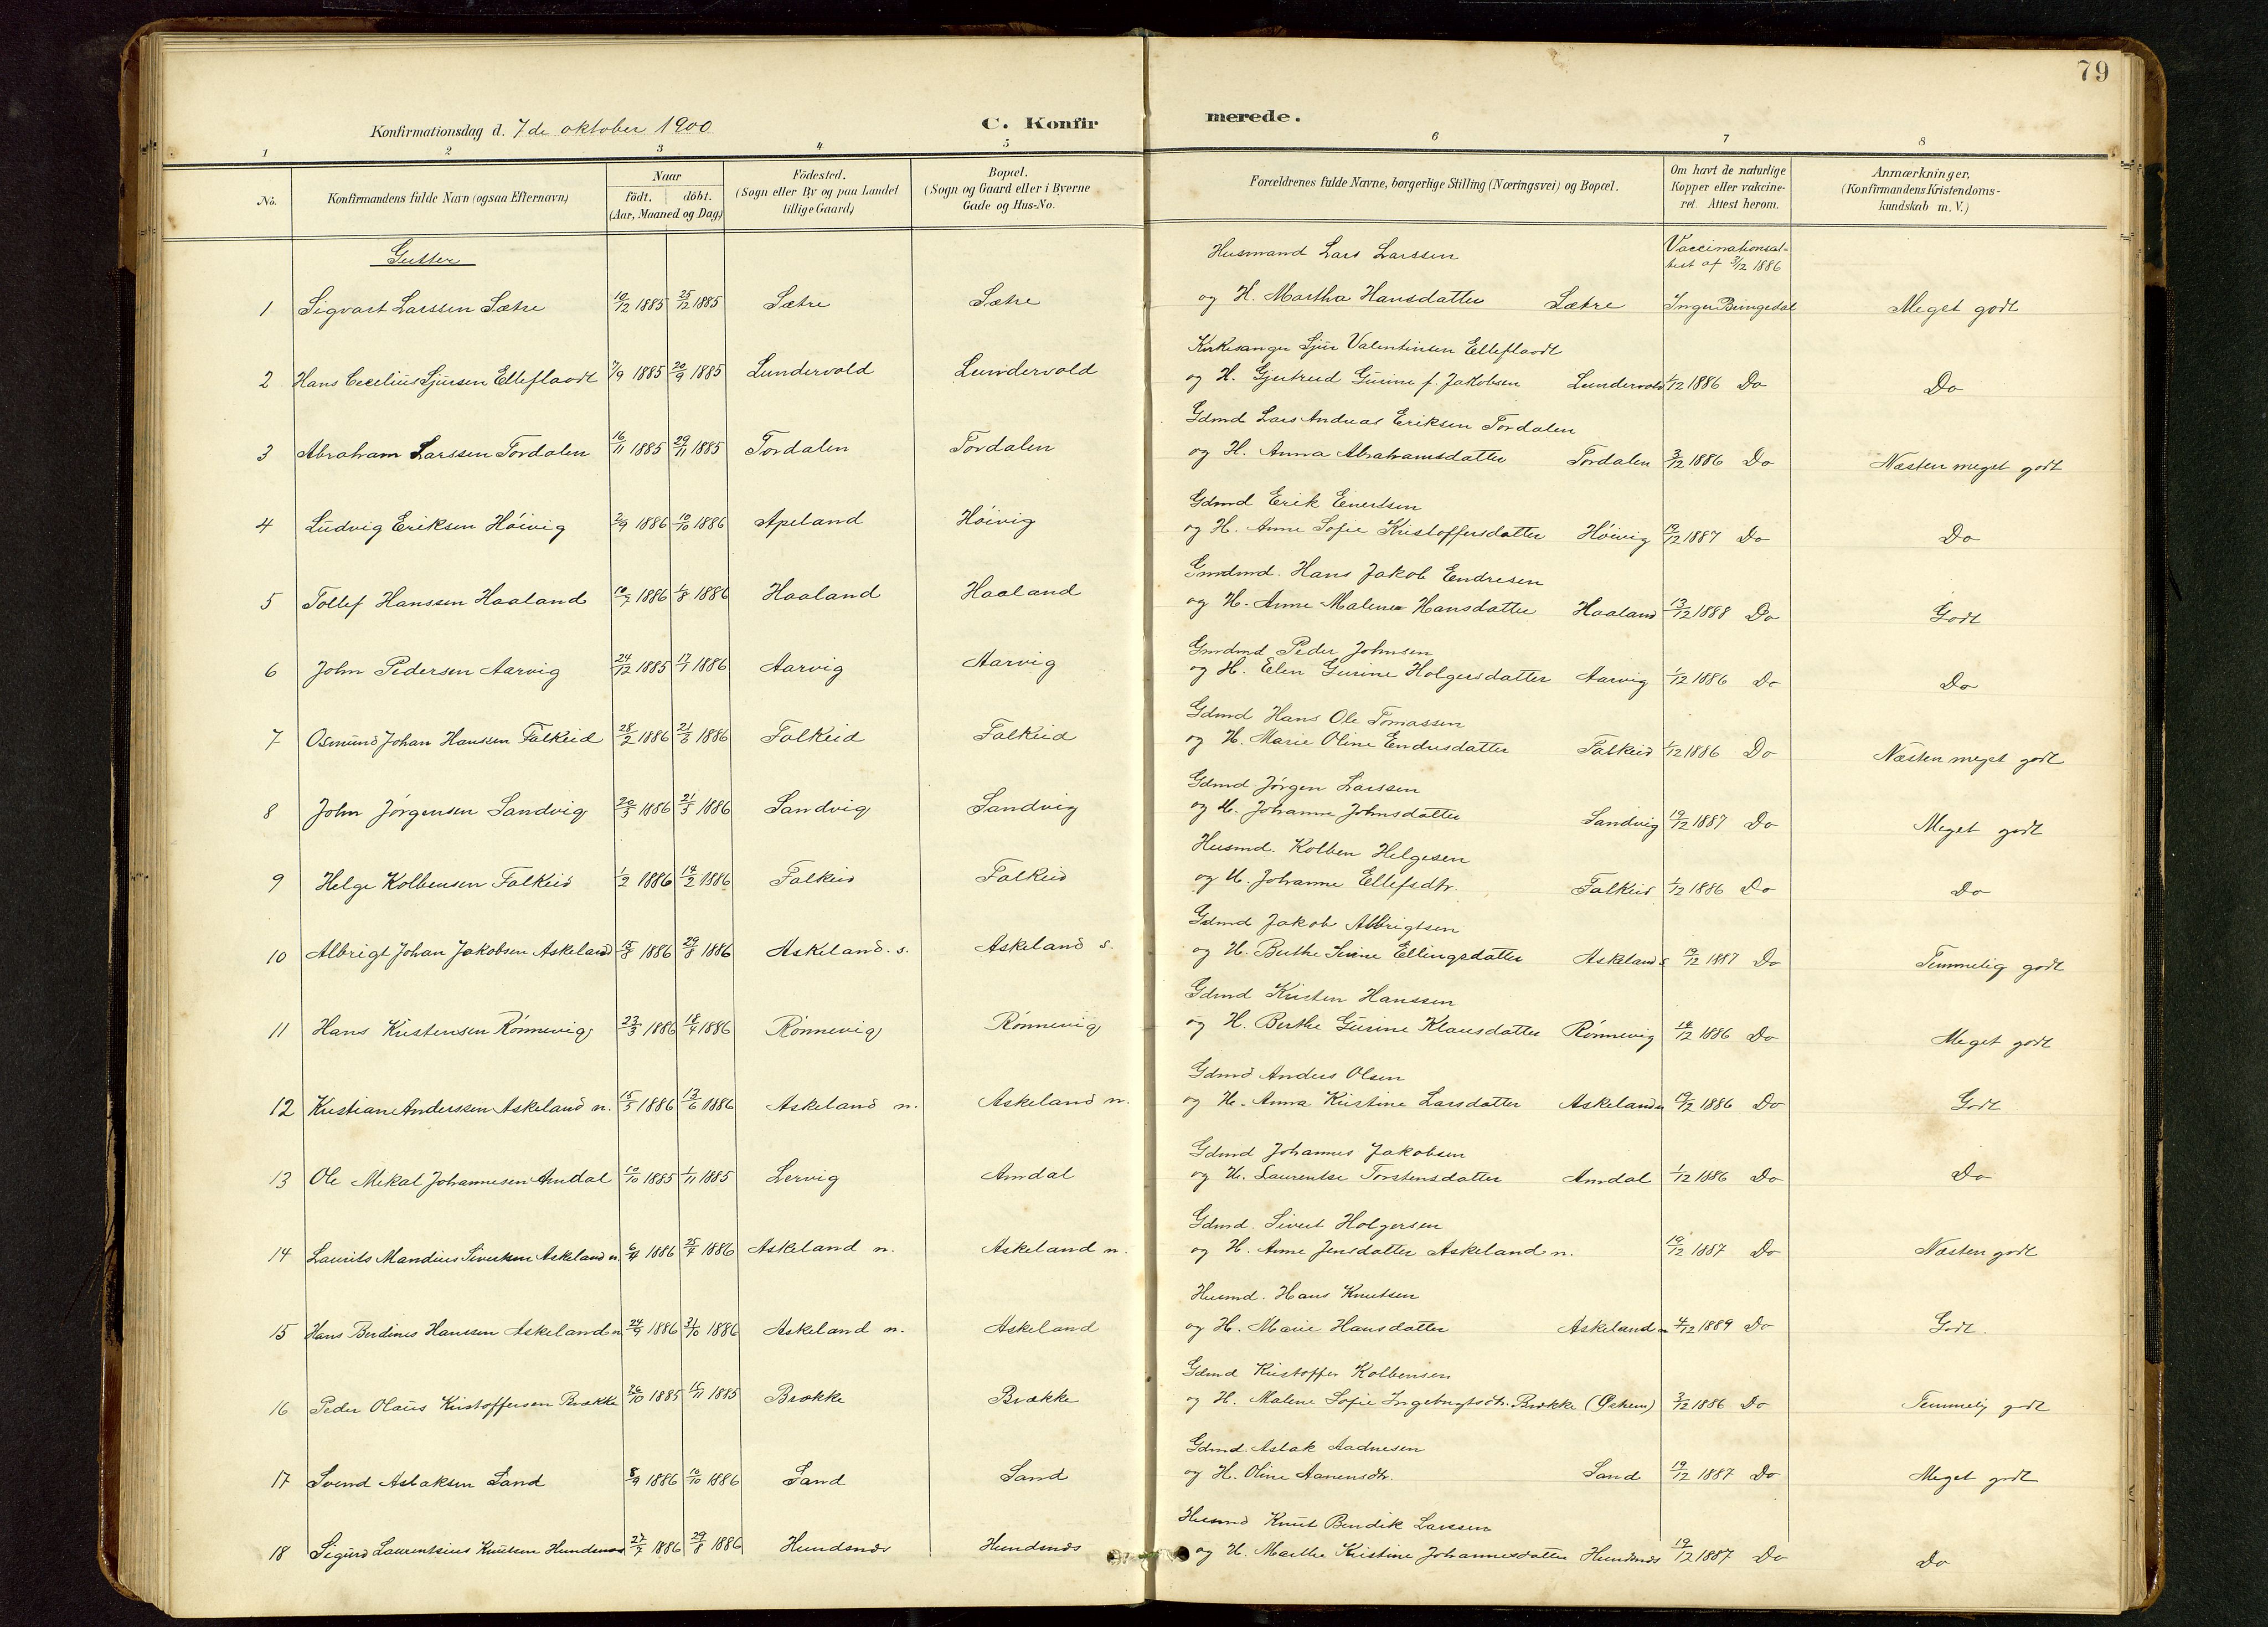 79
Konfirmationsdag d. 7de oktober 1900
C. Konfirmerede.
1 2 3 4 5 6 7 8
No. | Konfirmandens fulde Navn (ogsaa Efternavn) | Naar født. døbt. (Aar, Maaned og Dag) | Fødested. (Sogn eller By og paa Landet tillige Gaard) | Bopæl. (Sogn og Gaard eller i Byerne Gade og Hus-No. | Forældrenes fulde Navne, borgerlige Stilling (Næringsvei) og Bopæl. | Om havt de naturlige Kopper eller vakcineret. Attest herom. | Anmærkninger. (Konfirmandens Kristendomskundskab m. V.)
Gutter
Husmand Lars Larssen Vaccinationsattest af 3/12 1886
1 Sigvart Larssen Sætre 10/12 1885 25/12 1885 Sætre Sætre og H. Martha Hansdatter Sætre Inger Bringedal Meget godt
Kirkesanger Sjur Valentinsen Elleflaadt
2 Hans Cecilius Sjursen Elleflaadt 7/9 1885 20/9 1885 Lundervold Lundervold og H. Gjertrud Gurine f. Jakobsen Lundervold 1/12 1886 Do Do
Gdmd Lars Andreas Eriksen Tordalen
3 Abraham Larssen Tordalen 16/11 1885 29/11 1885 Tordalen Tordalen og H. Anna Abrahamsdatter Tordalen 3/12 1886 Do Næsten meget godt
Gdmd Erik Evertsen
4 Ludvig Eriksen Høivig 2/9 1886 10/10 1886 Apeland Høivig og H. Anne Sofie Kristoffersdatter Høivig 19/12 1887 Do Do
Gmdmd. Hans Jakob Endresen
5 Tollef Hanssen Haaland 10/7 1886 1/8 1886 Haaland Haaland og H. Anne Malene Hansdatter Haaland 13/12 1888 Do Godt
Gmdmd Peder Johnsen
6 John Pedersen Aarvig 24/12 1885 17/1 1886 Aarvig Aarvig og H. Elen Gurine Holgersdatter Aarvig 1/12 1886 Do Do
Gdmd Hans Ole Tomassen
7 Osmund Johan Hanssen Falkeid 28/2 1886 21/3 1886 Falkeid Falkeid og H. Marie Oline Endresdatter Falkeid 1/12 1886 Do Næsten meget godt
Gdmd Jørgen Larssen
8 John Jørgensen Sandvig 20/3 1886 21/3 1886 Sandvig Sandvig og H. Johanne Johnsdatter Sandvig 19/12 1887 Do Meget godt
Husmd. Kolben Helgesen
9 Helge Kolbensen Falkeid 1/2 1886 14/2 1886 Falkeid Falkeid og H. Johanne Ellefsdtr. Falkeid 1/12 1886 Do Do
Gdmd Jakob Albrigtsen
10 Albrigt Johan Jakobsen Askeland 15/8 1886 29/8 1886 Askeland. s. Askeland s. og H. Berthe Sirine Ellingsdatter Askeland s. 19/12 1887 Do Temmelig godt
Gdmd Kristen Hanssen
11 Hans Kristensen Rønnevig 23/3 1886 18/4 1886 Rønnevig Rønnevig og H. Berthe Gurine Klausdatter Rønnevig 14/12 1886 Do Meget godt
Gdmd Anders Olsen
12 Kristian Anderssen Askeland n. 15/5 1886 13/6 1886 Askeland n. Askeland n. og H. Anna Kristine Larsdatter Askeland n 19/12 1886 Do Godt
Gdmd Johannes Jakobsen
13 Ole Mikal Johannesen Amdal 10/10 1885 1/11 1885 Lervig Amdal og H. Laurentse Torstensdatter Amdal 1/12 1886 Do Do
Gdmd. Sivert Holgersen
14 Laurits Mandius Sivertsen Askeland n. 6/4 1886 25/4 1886 Askeland n. Askeland n. og H. Anne Jensdatter Askeland n. 19/12 1887 Do Næsten godt
Husmd. Hans Knutsen
15 Hans Berdines Hanssen Askeland n. 24/9 1886 31/10 1886 Askeland n. Askeland og H. Marie Hansdatter Askeland n 4/12 1889 Do Godt.
Gdmd Kristoffer Kolbensen
16 Peder Olaus Kristoffersen Brække 26/10 1885 15/11 1885 Brække Brække og H. Malene Sofie Ingebrigtsdtr. Brække (Øshem) 3/12 1886 Do Temmelig godt
Gdmd. Aslak Aadnesen
17 Svend Aslaksen Sand 8/9 1886 10/10 1886 Sand Sand og H. Oline Aanensdtr. Sand 19/12 1887 Do Meget godt
Husmd Knut Bendik Larssen
18 Sigurd Laurentsius Knutsen Hundsnæs 27/7 1886 29/8 1886 Hundsnæs Hundsnæs og H. Marthe Kristine Johannesdatter Hundsnæs 19/12 1887 Do Do